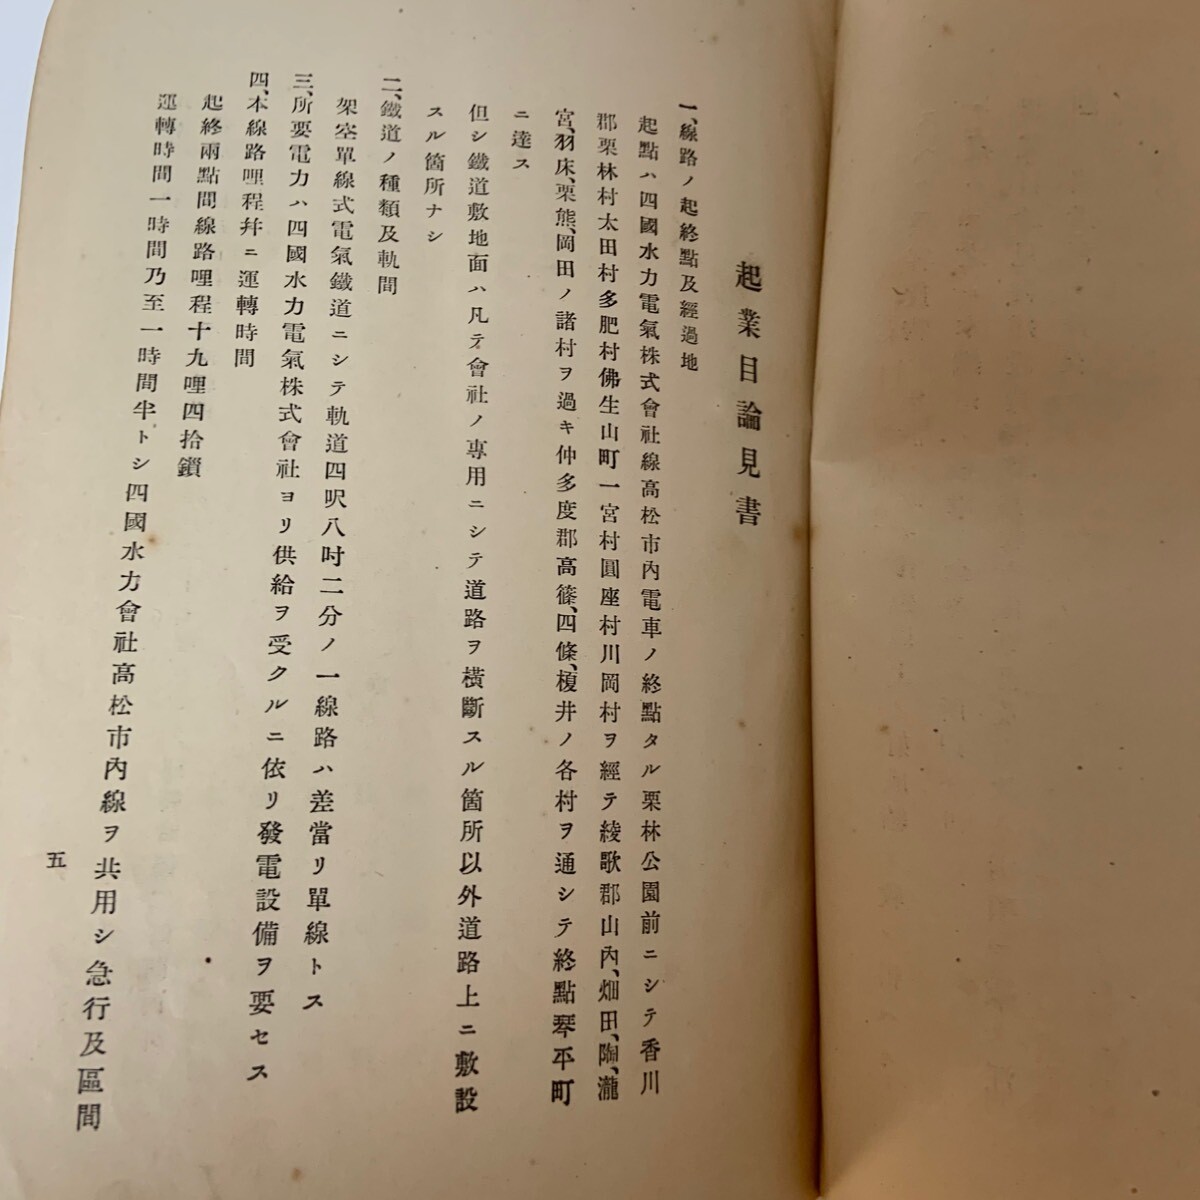 起業目論見書
一、線路ノ起終點及經過地
起點ハ四國水力電氣株式會社線高松市內電車ノ終點タル栗林公園前ニシテ香川
郡栗林村太田村多肥村佛生山町一宮村圓座村川岡村ヲ經テ綾歌郡山內、畑田、陶、瀧
宮、羽床、栗熊、岡田ノ諸村ヲ過キ仲多度郡高篠、四條、榎井ノ各村ヲ通シテ終點琴平町
ニ達ス
但シ鐵道敷地面ハ凡テ會社ノ專用ニシテ道路ヲ橫斷スル箇所以外道路上ニ敷設
スル箇所ナシ
二、鐵道ノ種類及軌間
架空單線式電氣鐵道ニシテ軌道四呎八吋二分ノ一線路ハ差當リ單線トス
三、所要電力ハ四國水力電氣株式會社ヨリ供給ヲ受クルニ依リ發電設備ヲ要セス
四、本線路哩程幷ニ運轉時間
起終兩點間線路哩程十九哩四拾鎖
運轉時間一時間乃至一時間半トシ四國水力會社高松市內線ヲ共用シ急行及區間
五